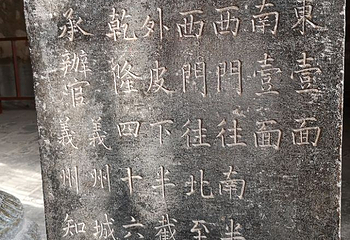 東壹面
南壹面
西門往南半
西門往北至
外皮下半截
乾隆四十六
義州城
承辦官義州知